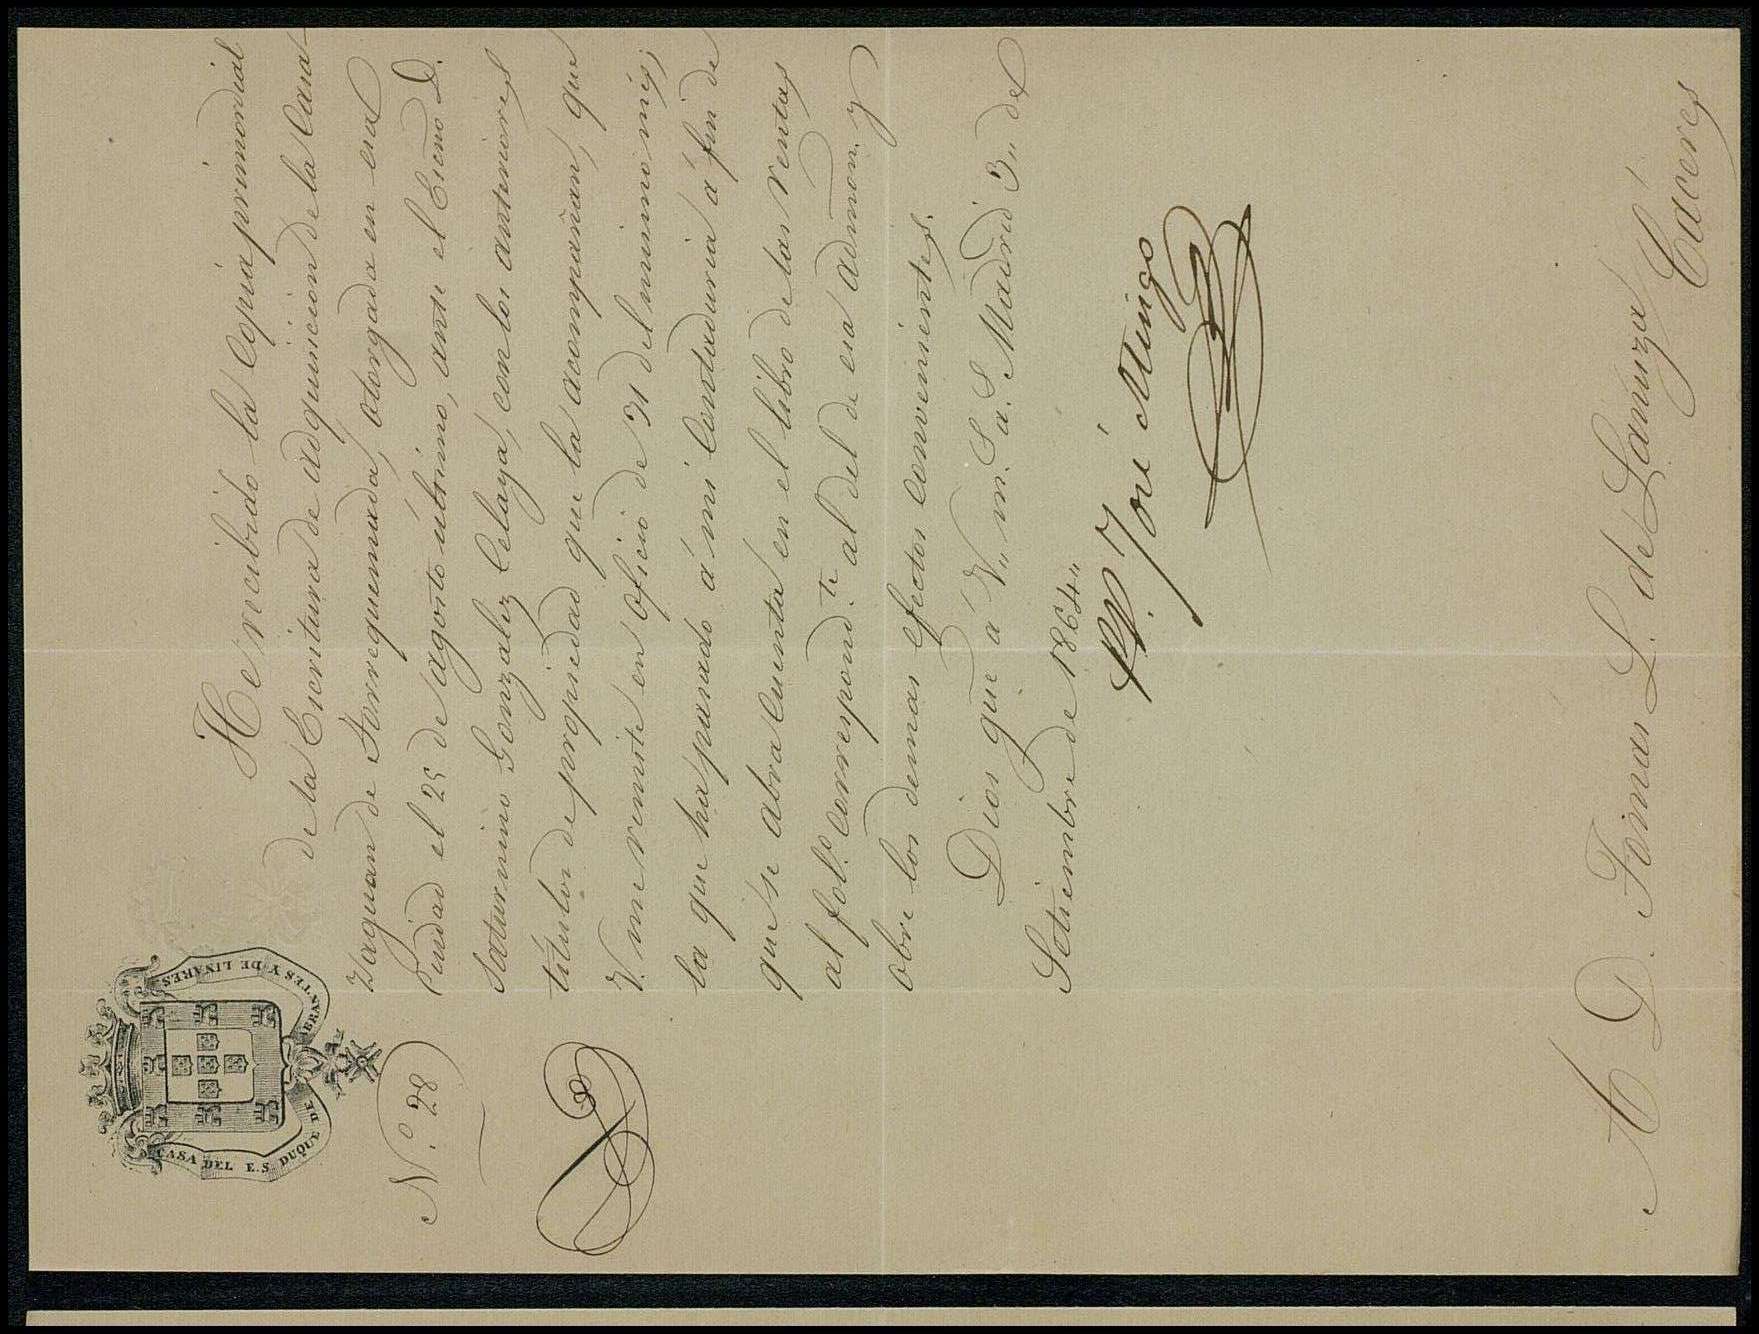 CASA DEL E.S. DUQUE DE ABRANTES Y DE LINARES
N.º 28
He recibido la Copia primordial
de la Escritura de adquisicion de la Casa
Zaguan de Torrequemada, otorgada en esa
Ciudad el 25 de agosto último, ante el Escno D.
Saturnino Gonzalez Celaya, con los anteriores
títulos de propiedad que la acompañan, que
V. me remite en oficio de 31 del mismo mes,
la que ha pasado á mi Contaduria á fin de
que se abra Cuenta en el libro de las rentas
al fol.º correspond.te al del de esa admon. y
obre los demas efectos convenientes.
Dios gue á V,, m.s a.s Madrid 3,, de
Setiembre de 1864,,
P.P. José Mingo
A D. Tomas L. de Lanuza
Caceres